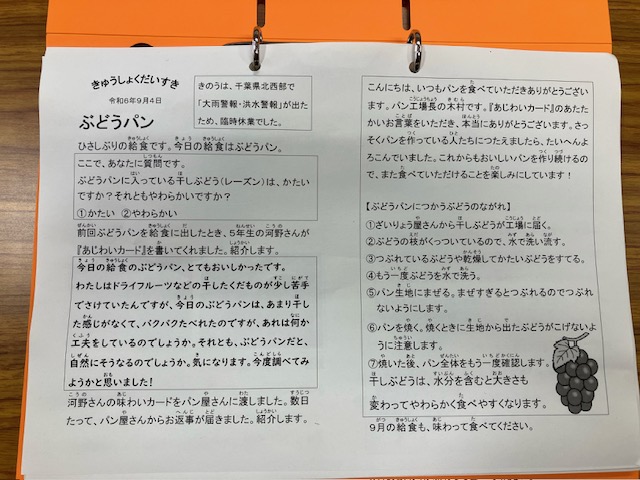 きゅうしょくだいすき
令和6年9月4日
ぶどうパン
きのうは、千葉県北西部で
「大雨警報・洪水警報」が出た
ため、臨時休業でした。
ひさしぶりの給食です。今日の給食はぶどうパン。
ここで、あなたに質問です。
ぶどうパンに入っている干しぶどう(レーズン)は、かたい
ですか?それともやわらかいですか?
①かたい ②やわらかい
前回ぶどうパンを給食に出したとき、5年生の河野さんが
『あじわいカード』を書いてくれました。紹介します。
今日の給食のぶどうパン、とてもおいしかったです。
わたしはドライフルーツなどの干したくだものが少し苦手
でさけていたんですが、今日のぶどうパンは、あまり干し
た感じがなくて、パクパクたべれたのですが、あれは何か
工夫をしているのでしょうか。それとも、ぶどうパンだと、
自然にそうなるのでしょうか。気になります。今度調べてみ
ようかと思いました!
河野さんの味わいカードをパン屋さんに渡しました。数日
たって、パン屋さんからお返事が届きました。紹介します。
こんにちは、いつもパンを食べていただきありがとうござい
ます。パン工場長の木村です。『あじわいカード』のあたた
かいお言葉をいただき、本当にありがとうございます。さっ
そくパンを作っている人たちにつたえましたら、たいへんよ
ろこんでいました。これからもおいしいパンを作り続けるの
で、また食べていただけることを楽しみにしています!
【ぶどうパンにつかうぶどうのながれ】
①ざいりょう屋さんから干しぶどうが工場に届く。
②ぶどうの枝がくっついているので、水で洗い流す。
③つぶれているぶどうや乾燥してかたいぶどうをすてる。
④もう一度ぶどうを水で洗う。
⑤パン生地にまぜる。まぜすぎるとつぶれるのでつぶれ
ないようにします。
⑥パンを焼く。焼くときに生地から出たぶどうがこげないよ
うに注意します。
⑦焼いた後、パン全体をもう一度確認します。
干しぶどうは、水分を含むと大きさも
変わってやわらかく食べやすくなります。
9月の給食も、味わって食べてください。